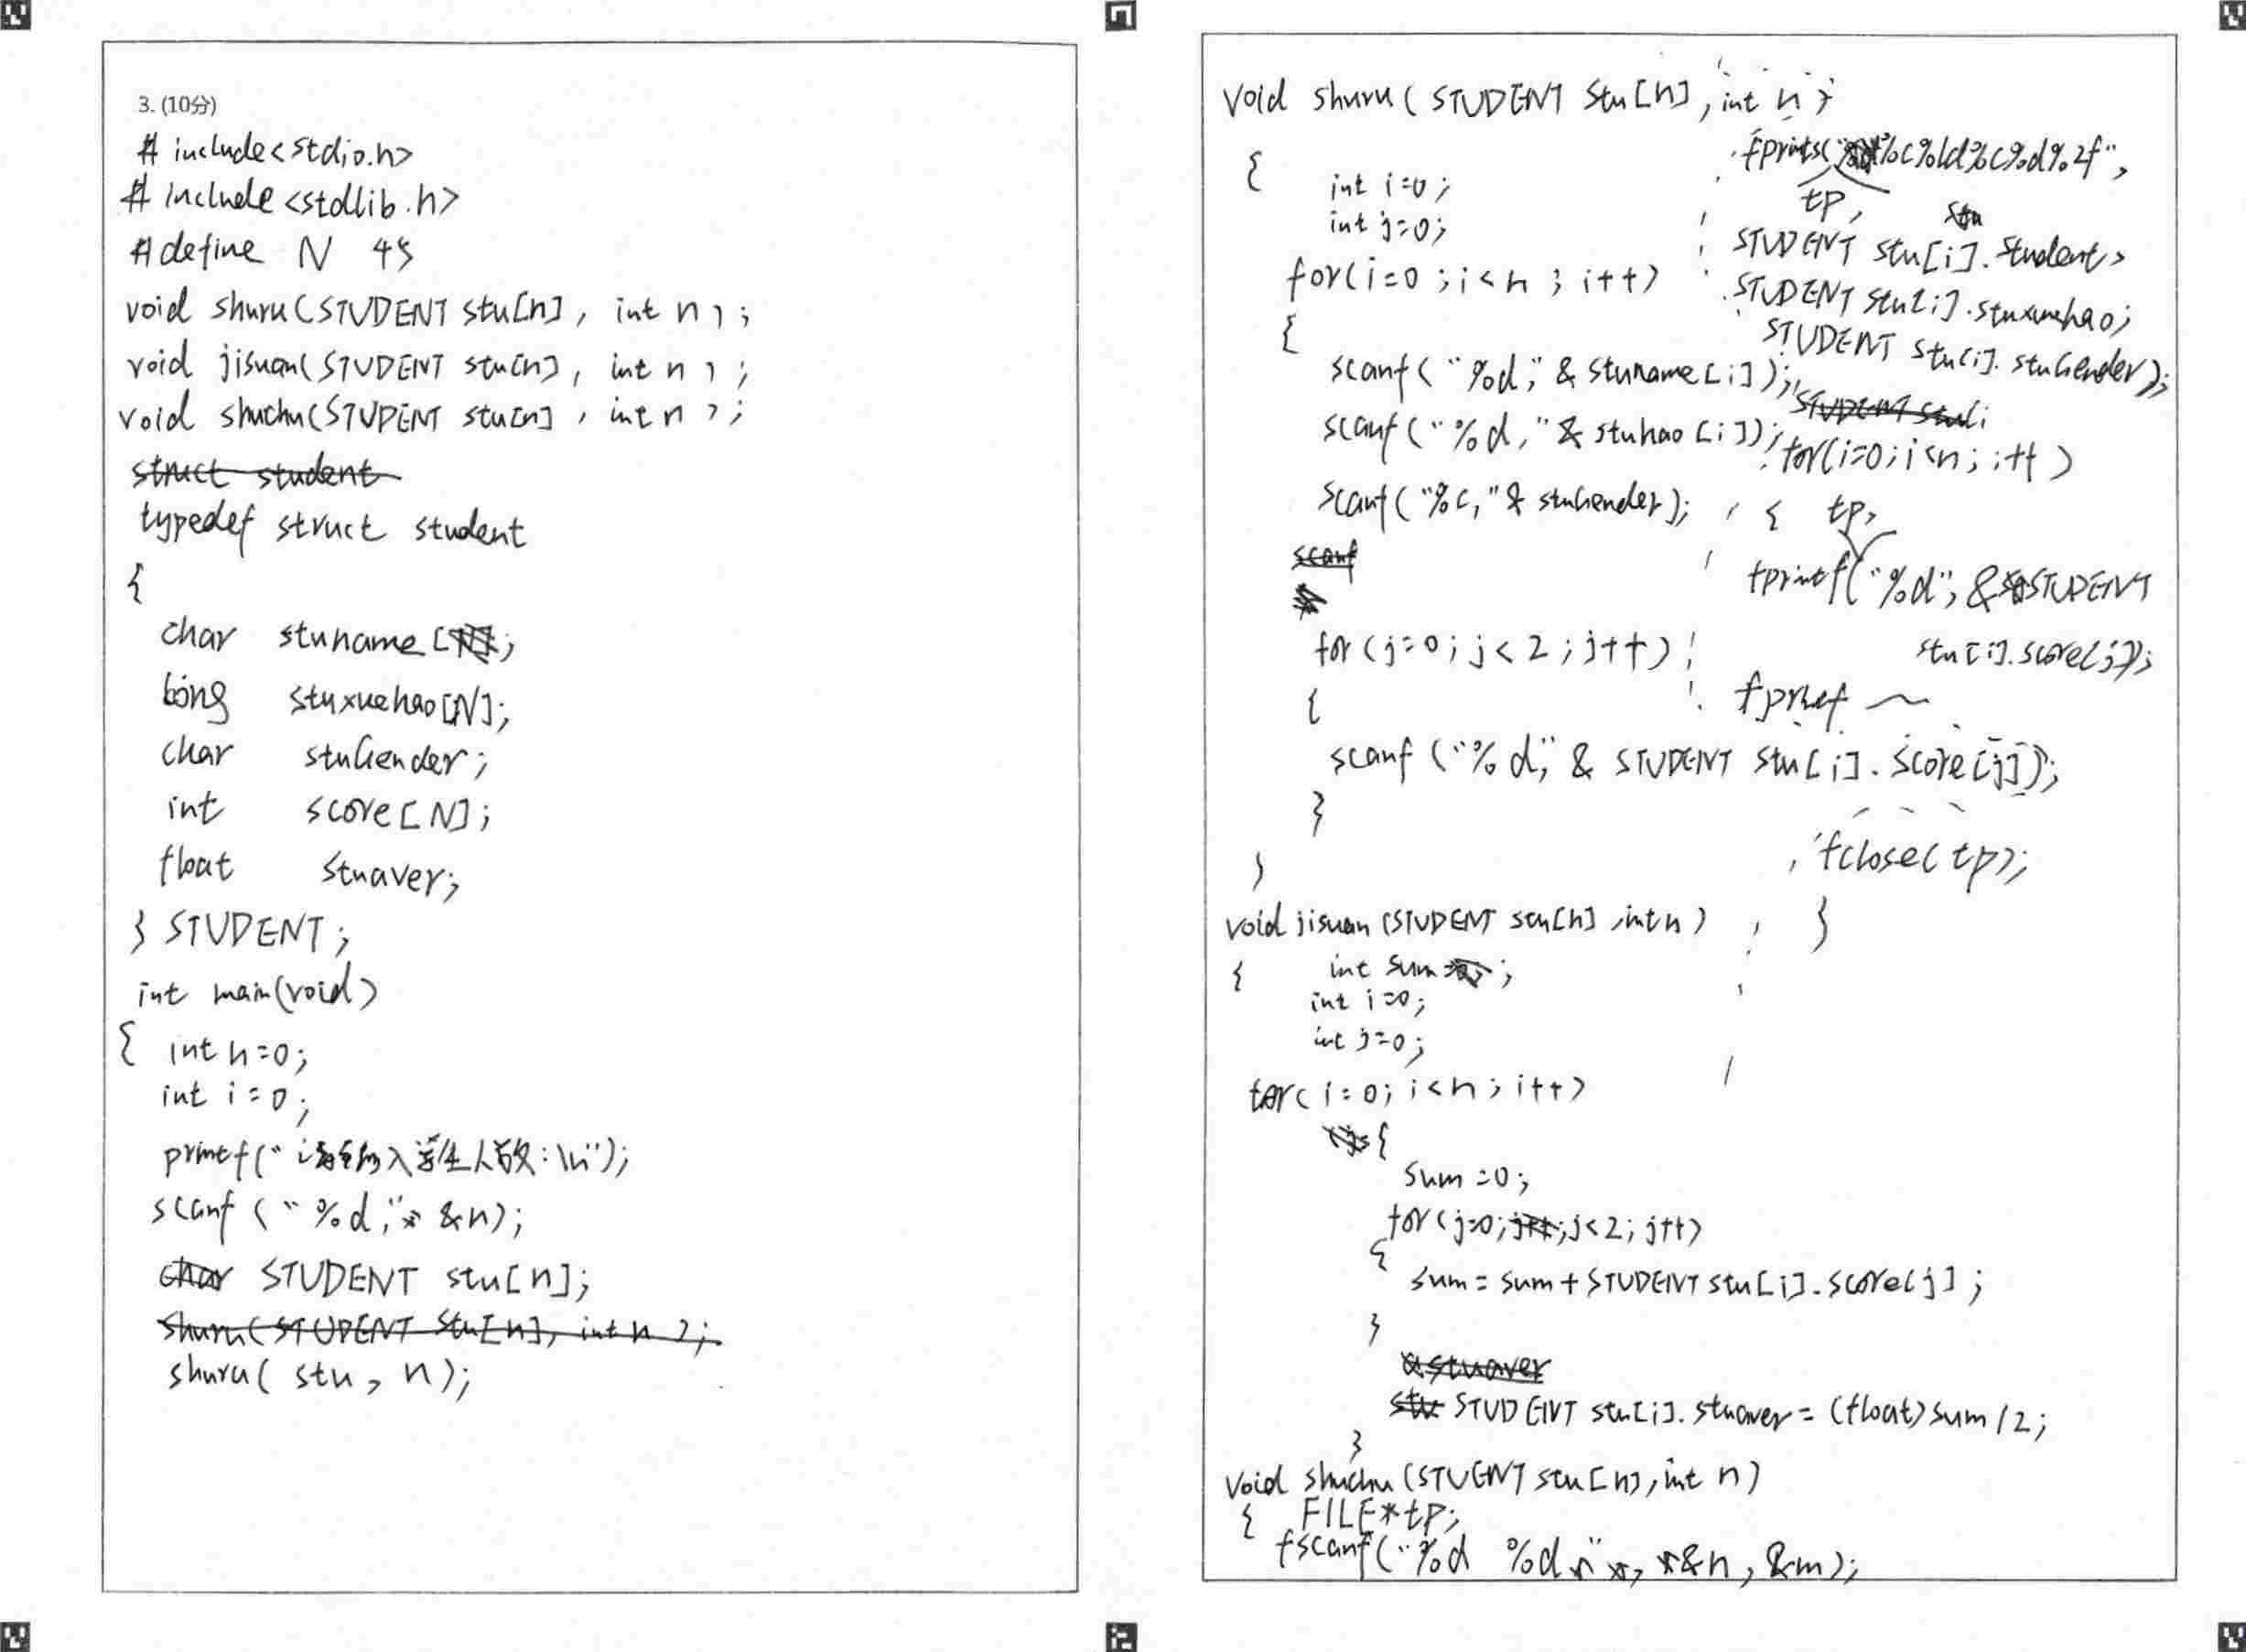 3. (10分)
# include<stdio.h>
# include<stdlib.h>
#define N 45
void shuru(STUDENT stu[n], int n);
void jisuan(STUDENT stu[n], int n);
void shuchu(STUDENT stu[n], int n);
struct student
typedef struct student
{
char stuname[
long stuxuehao[N];
char stuGender;
int score[N];
float stuaver;
} STUDENT;
int main(void)
{ int n=0;
int i=0;
printf("请输入学生人数:\n");
scanf("%d," &n);
char STUDENT stu[n];
shuru(STUDENT stu[n], int n);
shuru( stu, n);
void shuru( STUDENT stu[n], int n)
{ int i=0;
int j=0;
for(i=0;i<n;i++)
{
scanf("%d," & stuname[i]);
scanf("%d," & stuhao[i]);
scanf("%c," & stuGender);
scanf
for(j=0;j<2;j++)
{
scanf("%d," & STUDENT stu[i].score[j]);
}
}
void jisuan(STUDENT stu[n], int n)
{ int sum ;
int i=0;
int j=0;
for(i=0;i<n;i++)
{
sum=0;
for(j=0;j++;j<2;j++)
{
sum=sum+STUDENT stu[i].score[j];
}
stuaver
stu STUDENT stu[i].stuaver=(float)sum/2;
}
void shuchu(STUENT stu[n], int n)
{ FILE*tp;
fscanf("%d %d , &n, &m);
fprints(" %c%ld%c%d%2f",
tp, stu
STUDENT stu[i].student,
STUDENT stu[i].stuxuehao;
STUDENT stu[i].stuGender);
STUDENT stuli
for(i=0;i<n;i++)
{ tp,
fprintf("%d", & STUDENT
stu[i].score[j]);
fprintf ~
fclose(tp);
}